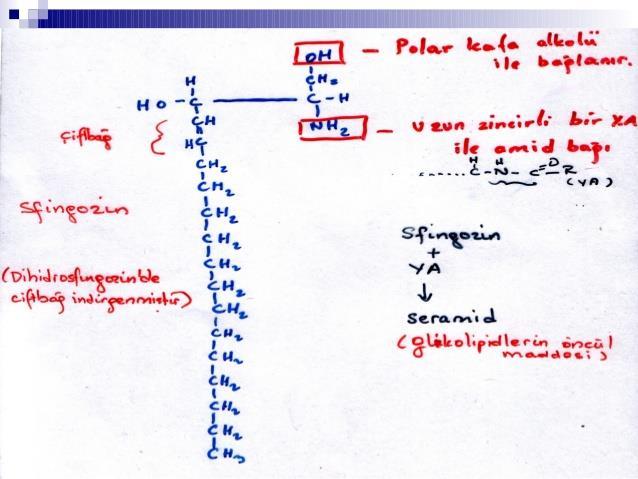 OH — Polar kafa alkolü
ile bağlanır.
CH2
H
HO - C — C - H
NH2 — Uzun zincirli bir YA
ile amid bağı
CH
Çiftbağ
HC
H H O
...... C - N - C - R
(YA)
CH2
CH2
Sfingozin
CH2
CH2
CH2
(Dihidrosfingozin'de
çiftbağ indirgenmiştir)
CH2
CH2
CH2
CH2
CH2
CH2
CH2
CH3
Sfingozin
+
YA
↓
seramid
(glikolipidlerin öncül
maddesi)